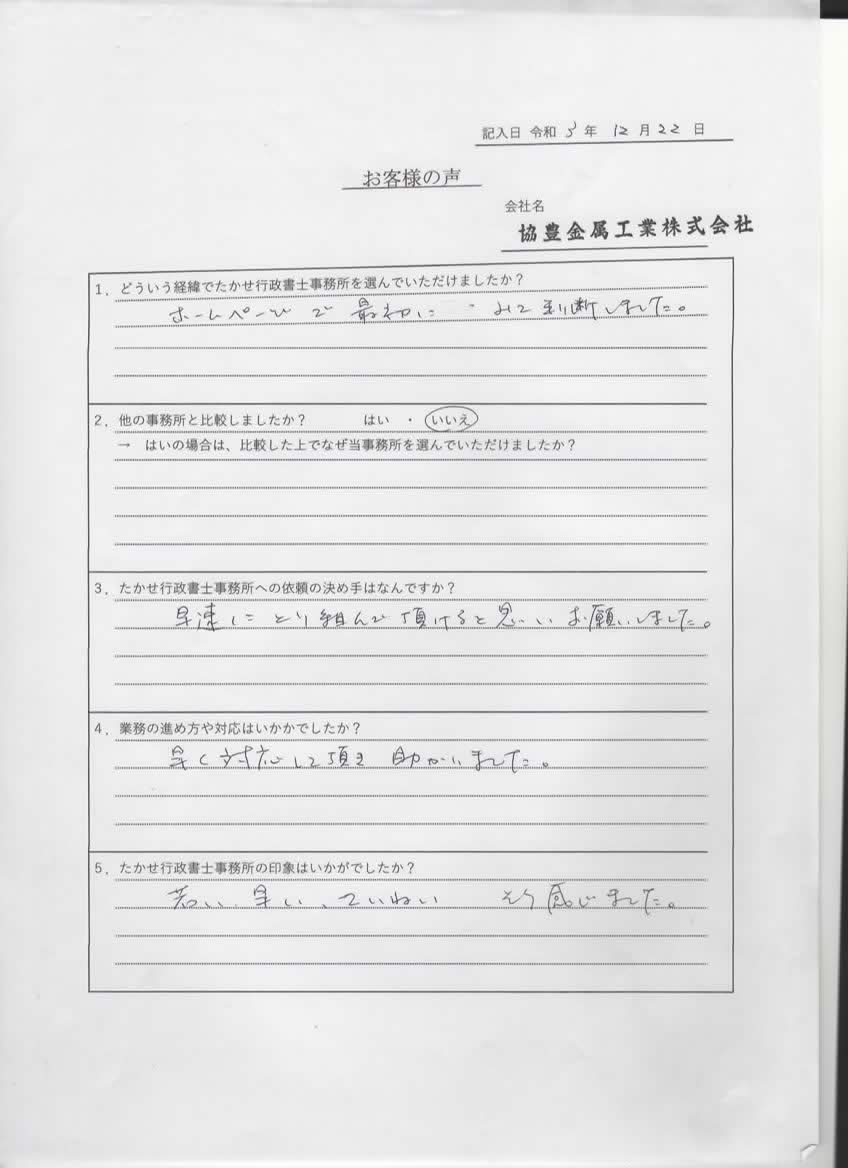 記入日 令和 3 年 12 月 22 日
お客様の声
会社名
協豊金属工業株式会社
1．どういう経緯でたかせ行政書士事務所を選んでいただけましたか？
ホームページで 最初に みて判断しました。
2．他の事務所と比較しましたか？ はい ・ いいえ
→ はいの場合は、比較した上でなぜ当事務所を選んでいただけましたか？
3．たかせ行政書士事務所への依頼の決め手はなんですか？
早速に とり組んで頂けると思い お願いしました。
4．業務の進め方や対応はいかかでしたか？
早く対応して頂き 助かりました。
5．たかせ行政書士事務所の印象はいかがでしたか？
若い、早い、ていねい そう感じました。